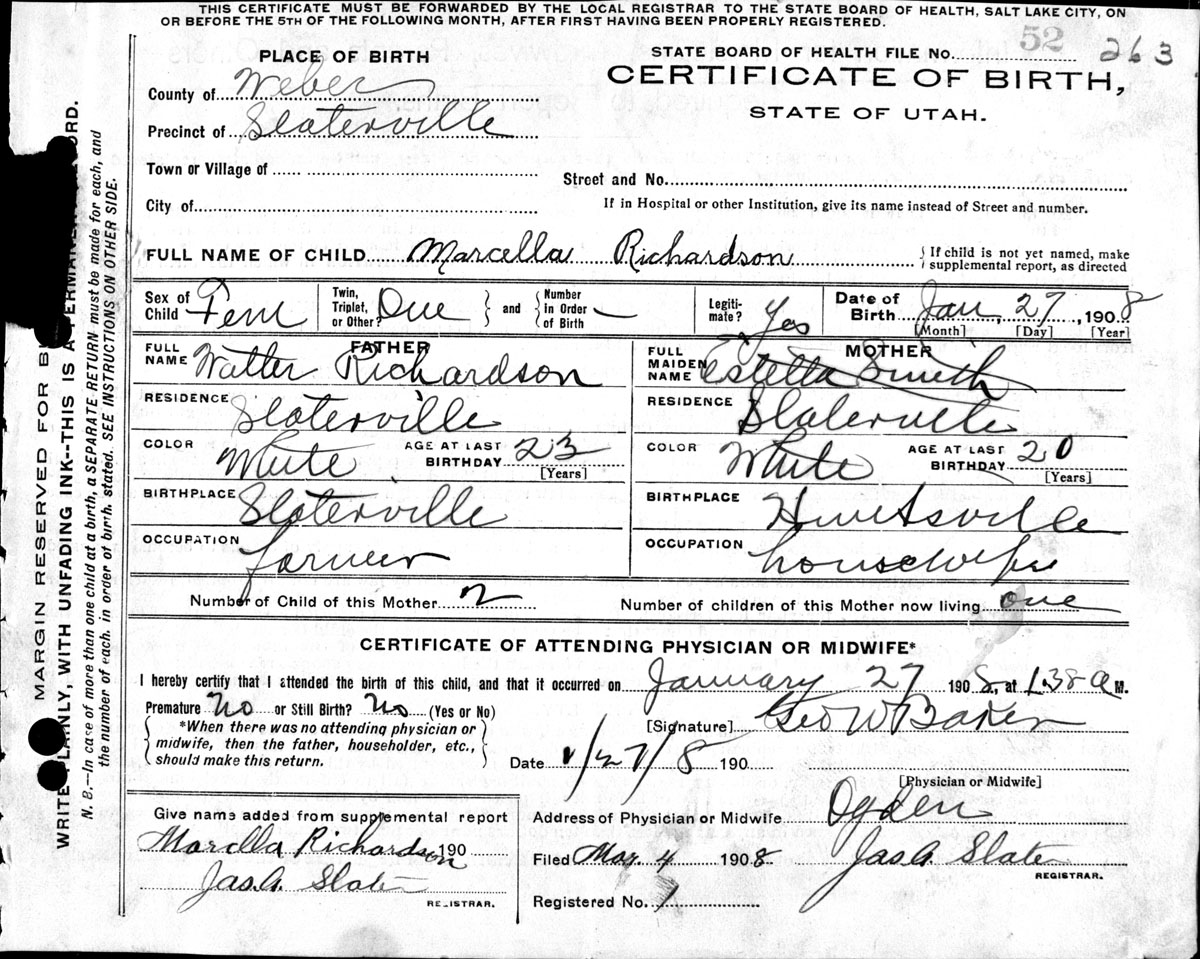 THIS CERTIFICATE MUST BE FORWARDED BY THE LOCAL REGISTRAR TO THE STATE BOARD OF HEALTH, SALT LAKE CITY, ON
OR BEFORE THE 5TH OF THE FOLLOWING MONTH, AFTER FIRST HAVING BEEN PROPERLY REGISTERED.
PLACE OF BIRTH
County of Weber
Precinct of Slaterville
Town or Village of
City of
STATE BOARD OF HEALTH FILE No. 52 263
CERTIFICATE OF BIRTH,
STATE OF UTAH.
Street and No.
If in Hospital or other Institution, give its name instead of Street and number.
FULL NAME OF CHILD Marcella Richardson { If child is not yet named, make supplemental report, as directed
Sex of Child Fem Twin, Triplet, or Other? One } and { Number in Order of Birth — Legiti-mate? Yes Date of Birth Jan, 27, 1908
[Month] [Day] [Year]
FATHER
FULL NAME Walter Richardson
RESIDENCE Slaterville
COLOR White AGE AT LAST BIRTHDAY 23
[Years]
BIRTHPLACE Slaterville
OCCUPATION farmer
MOTHER
FULL MAIDEN NAME Estetta Smith
RESIDENCE Slaterville
COLOR White AGE AT LAST BIRTHDAY 20
[Years]
BIRTHPLACE Huntsville
OCCUPATION housewife
Number of Child of this Mother 2 Number of children of this Mother now living one
CERTIFICATE OF ATTENDING PHYSICIAN OR MIDWIFE*
I hereby certify that I attended the birth of this child, and that it occurred on January 27 1908, at 1.38 a M.
Premature No or Still Birth? No (Yes or No)
{ *When there was no attending physician or midwife, then the father, householder, etc., should make this return. }
[Signature] Geo W Baker
Date 1/27/8 190
[Physician or Midwife]
Give name added from supplemental report
Marcella Richardson 190
Jas. A. Slater
REGISTRAR.
Address of Physician or Midwife Ogden
Filed Mar, 4 1908 Jas A. Slater
REGISTRAR.
Registered No. 1
MARGIN RESERVED FOR B
WRITE PLAINLY, WITH UNFADING INK---THIS IS A PERMANENT RECORD.
N. B.—In case of more than one child at a birth, a SEPARATE RETURN must be made for each, and
the number of each, in order of birth, stated. SEE INSTRUCTIONS ON OTHER SIDE.